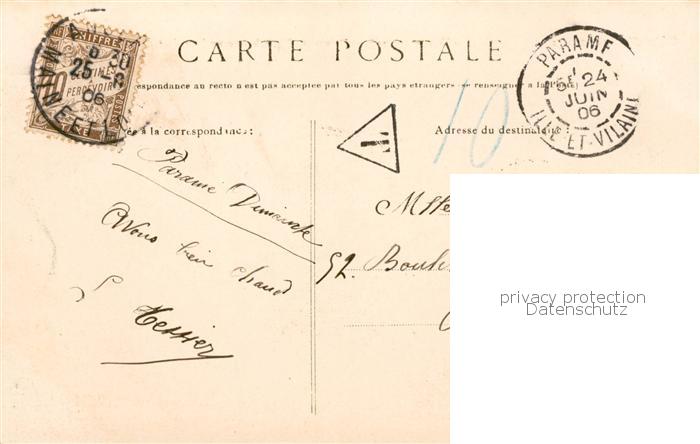 CARTE POSTALE
respondance au recto n'est pas acceptée par tous les pays étrangers (se renseigner à la Poste)
ée à la correspondance:
Adresse du destinataire:
CHIFFRE
A PERCEVOIR
6 30
25 6
06
MAINE-ET-L
PARAMÉ
24
JUIN
06
ILLE-ET-VILAINE
T
10
Paramé Dimanche
Nous bien chaud
Tessier
Mlle
52. Boule
privacy protection
Datenschutz